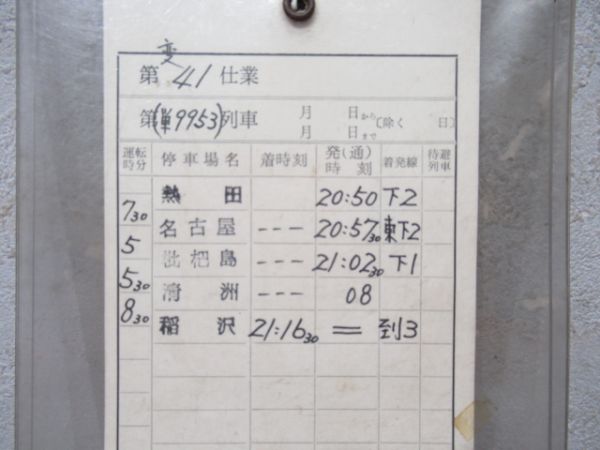 変
第 41 仕業
第(単9953)列車 月 日から 月 日まで (除く 日)
運転時分 停車場名 着時刻 発(通)時刻 着発線 待避列車
熱田 20:50 下2
7 30
名古屋 --- 20:57 30 東下2
5
枇杷島 --- 21:02 30 下1
5 30
清洲 --- 08
8 30
稲沢 21:16 30 = 到3